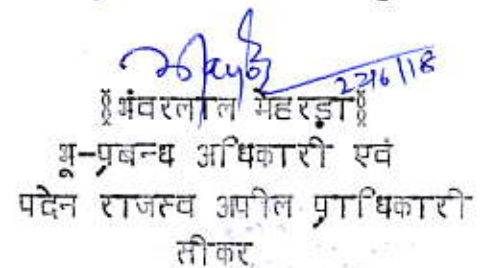 22/6/18
§भंवरलाल मेहरड़ा§
भू-प्रबन्ध अधिकारी एवं
पदेन राजस्व अपील प्राधिकारी
सीकर